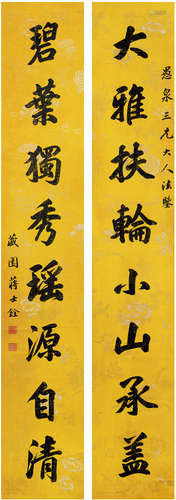 愚泉三兄大人法鑒
大雅扶輪小山承蓋
碧葉獨秀瑤源自清
藏園蔣士銓